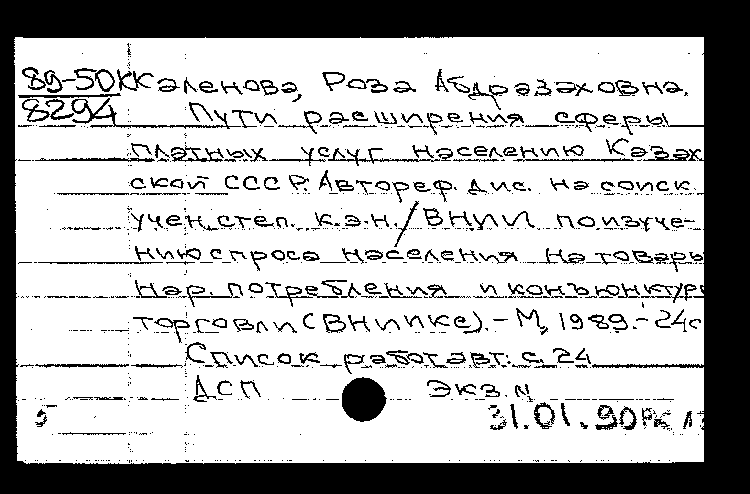 89-50К Каленова, Роза Абдразаховна.
8294 Пути расширения сферы
платных услуг населению Казах
ской ССР. Автореф. дис. на соиск.
учен. степ. к.э.н. / ВНИИ по изуче-
нию спроса населения на товары
нар. потребления и конъюнктуры
торговли (ВНИИКС). - М, 1989. - 24с
Список работ авт: с. 24
ДСП Экз. N
5 31.01.90